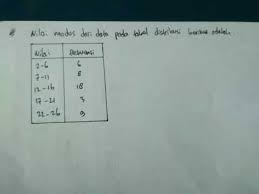 # Nilai modus dari data pada tabel distribusi berikut adalah
Nilai Frekuensi
2-6 6
7-11 8
12-16 18
17-21 3
22-26 9